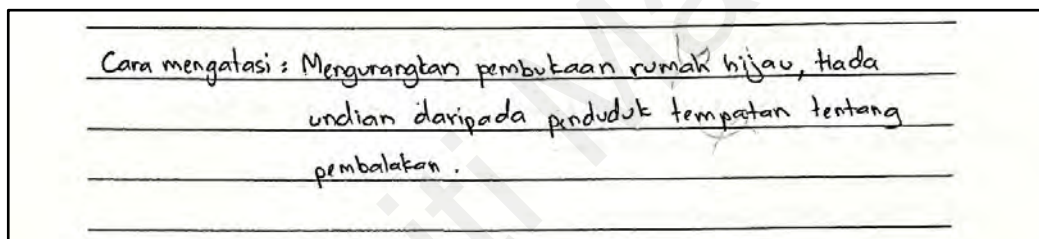 Cara mengatasi : Mengurangkan pembukaan rumah hijau, tiada
undian daripada penduduk tempatan tentang
pembalakan.